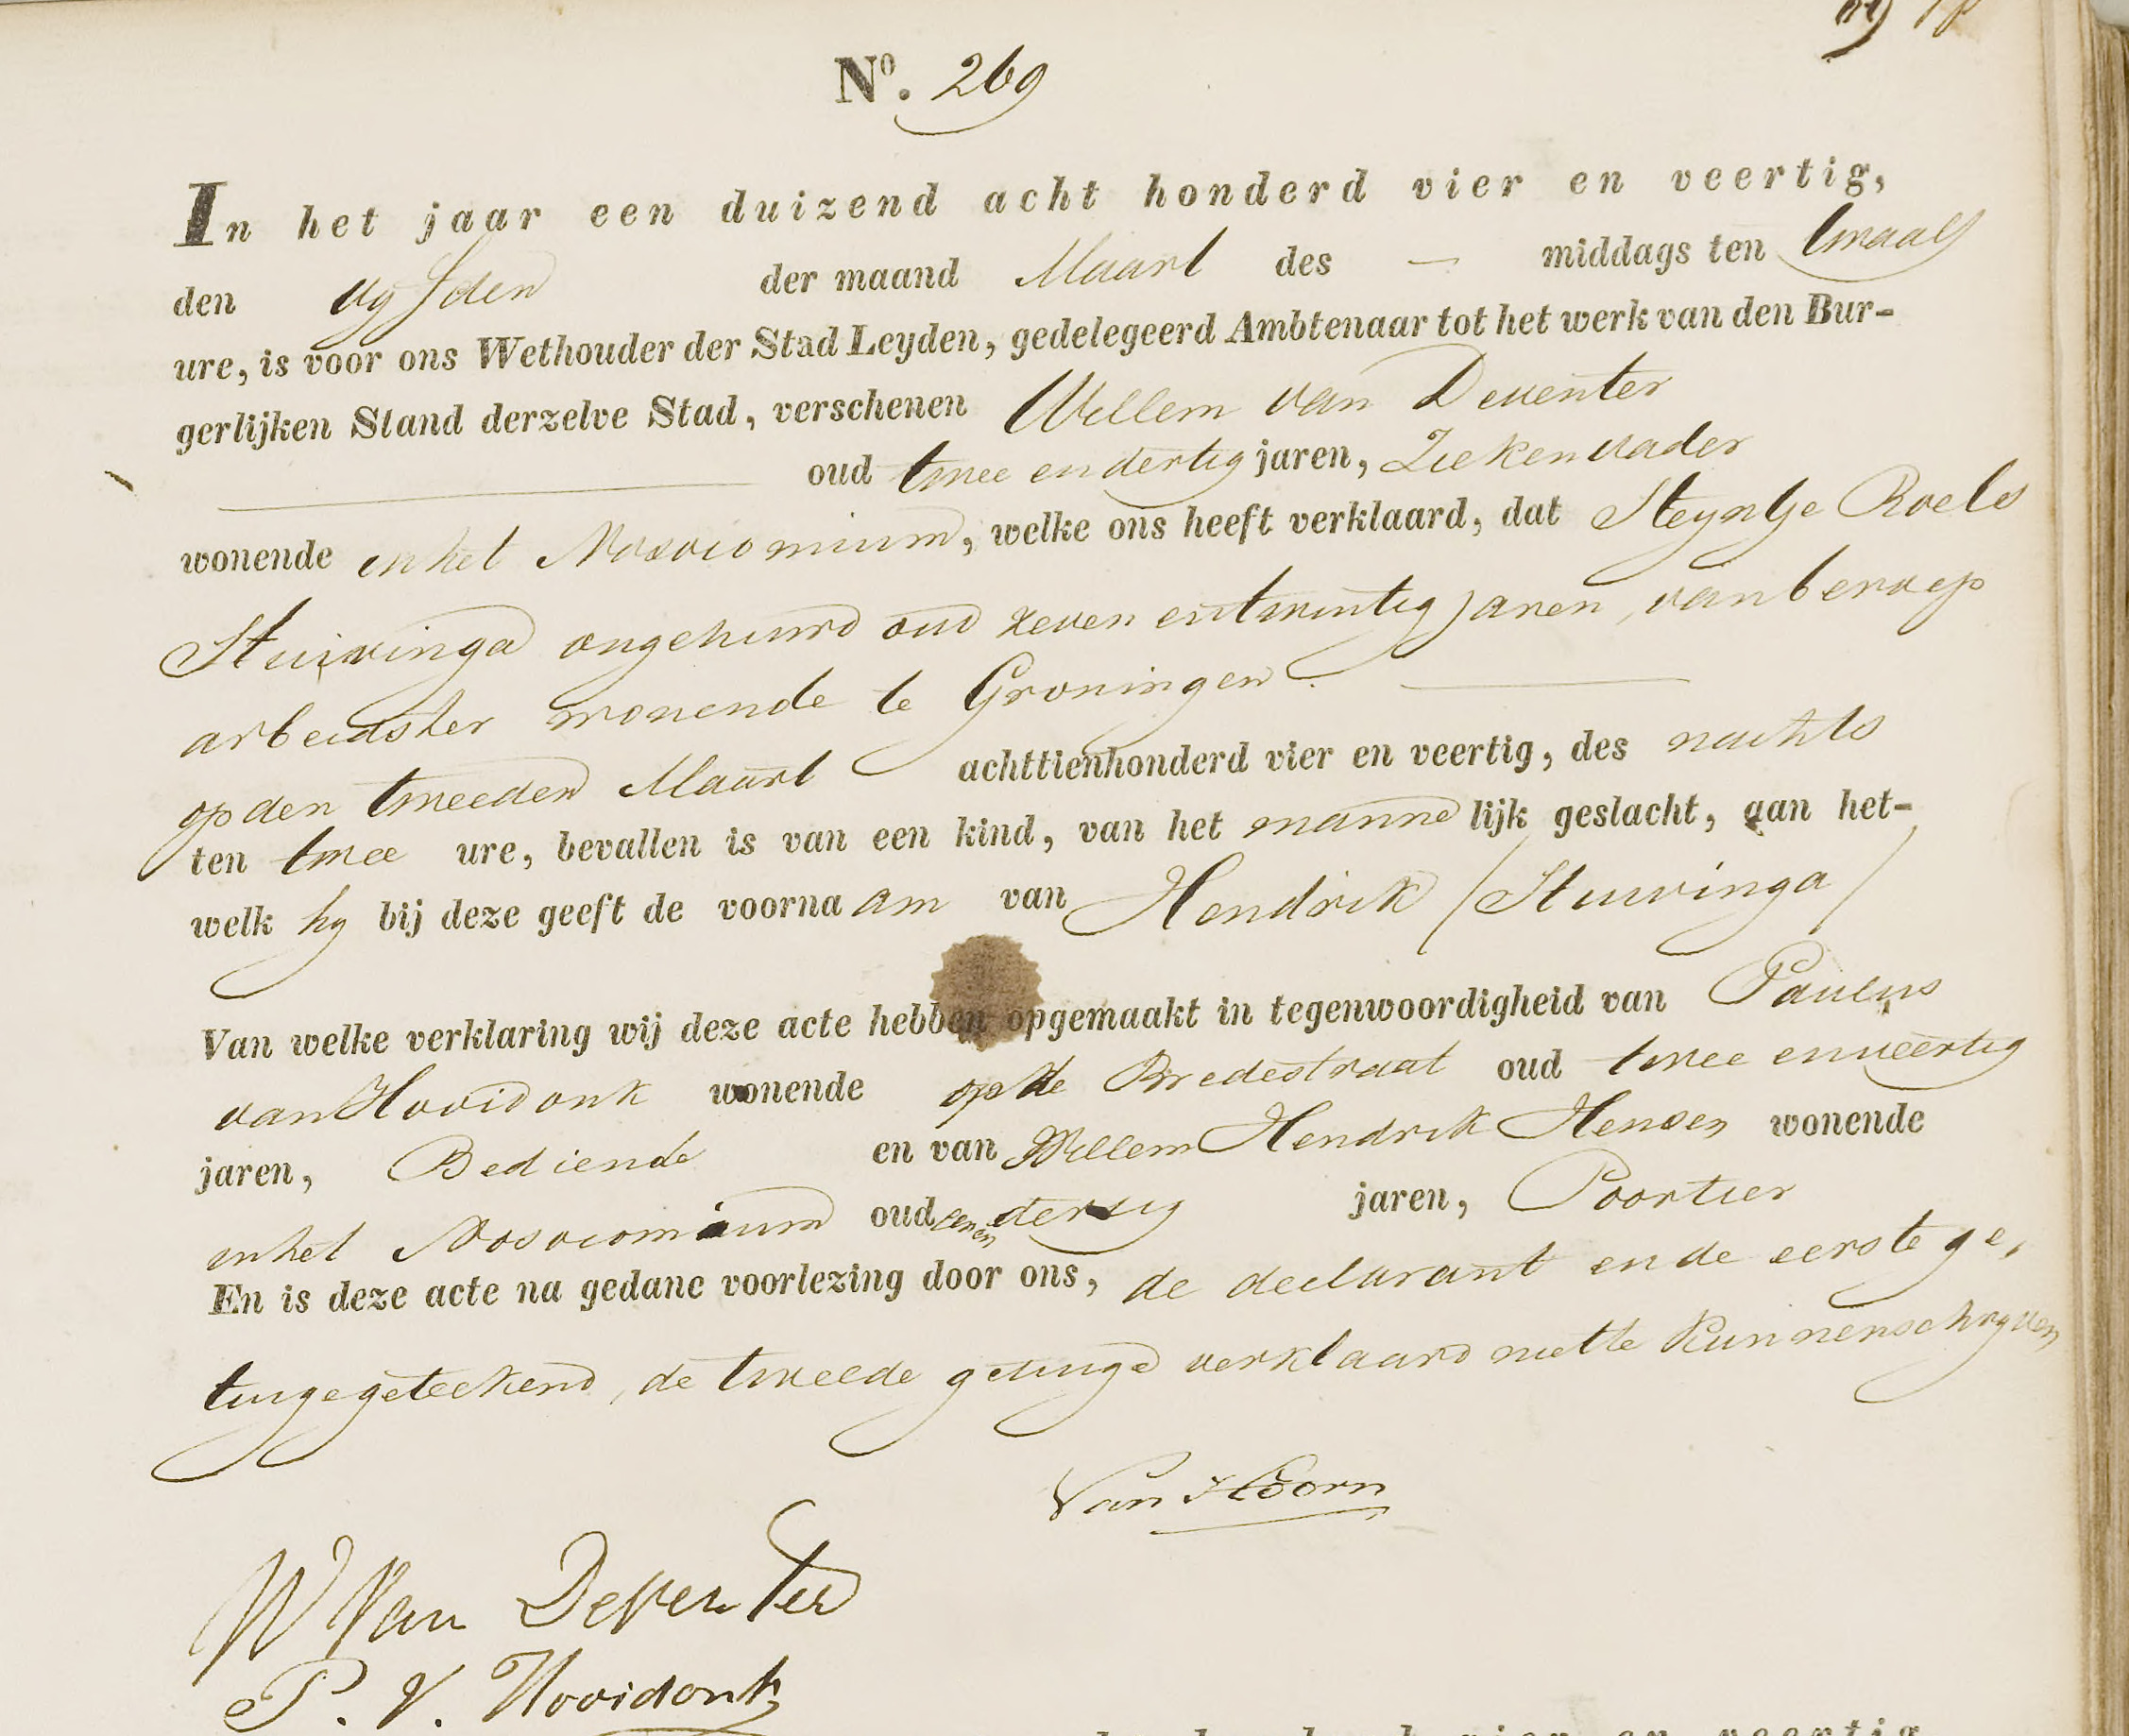 Nº. 269
In het jaar een duizend acht honderd vier en veertig,
den vyfden der maand Maart des — middags ten twaalf
ure, is voor ons Wethouder der Stad Leyden, gedelegeerd Ambtenaar tot het werk van den Bur-
gerlijken Stand derzelve Stad, verschenen Willem van Deventer
oud twee en dertig jaren, Ziekenvader
wonende in het Nosocomium, welke ons heeft verklaard, dat Steyntje Roels
Stuivinga ongehuwd oud zeven en twintig jaren, van beroep
arbeidster wonende te Groningen.
op den tweeden Maart achttienhonderd vier en veertig, des nachts
ten twee ure, bevallen is van een kind, van het mannelijk geslacht, aan het-
welk hy bij deze geeft de voornaam van Hendrik /Stuivinga/
Van welke verklaring wij deze acte hebben opgemaakt in tegenwoordigheid van Paulus
van Hooidonk wonende op de Breedestraat oud twee en veertig
jaren, Bediende en van Willem Hendrik Hensen wonende
in het Nosocomium oud een en dertig jaren, Poortier
En is deze acte na gedane voorlezing door ons, de declarant en de eerste ge,
tuige geteekend, de tweede getuige verklaard niet te kunnen schryven
Van Hoorn
W Van Deventer
P. V. Hooidonk